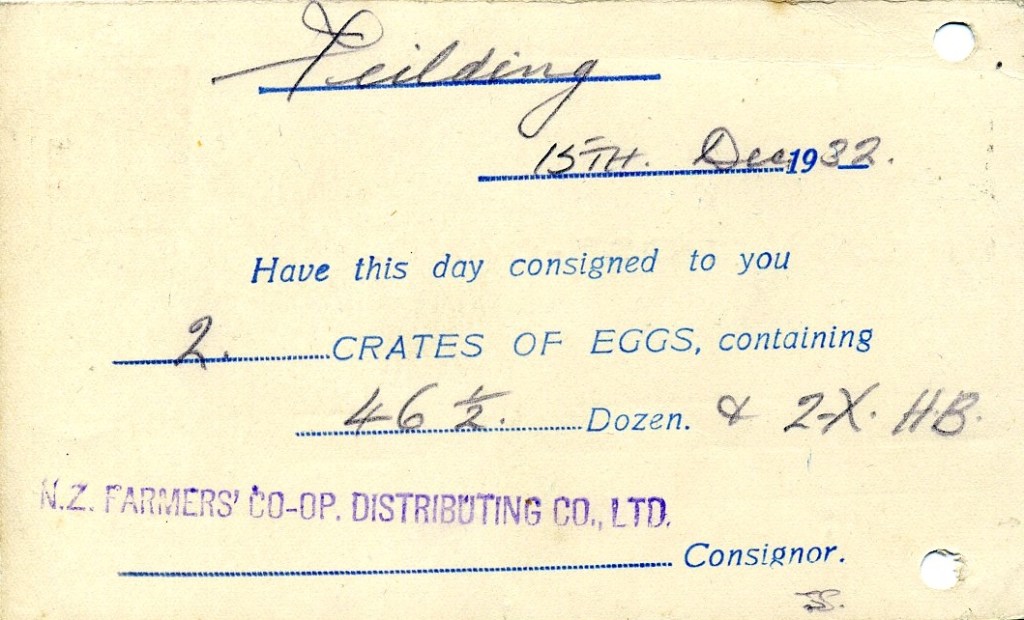 Feilding
15TH. Dec 1932.
Have this day consigned to you
2. CRATES OF EGGS, containing
46 1/2. Dozen. & 2-X. H.B.
N.Z. FARMERS' CO-OP. DISTRIBUTING CO., LTD.
Consignor.